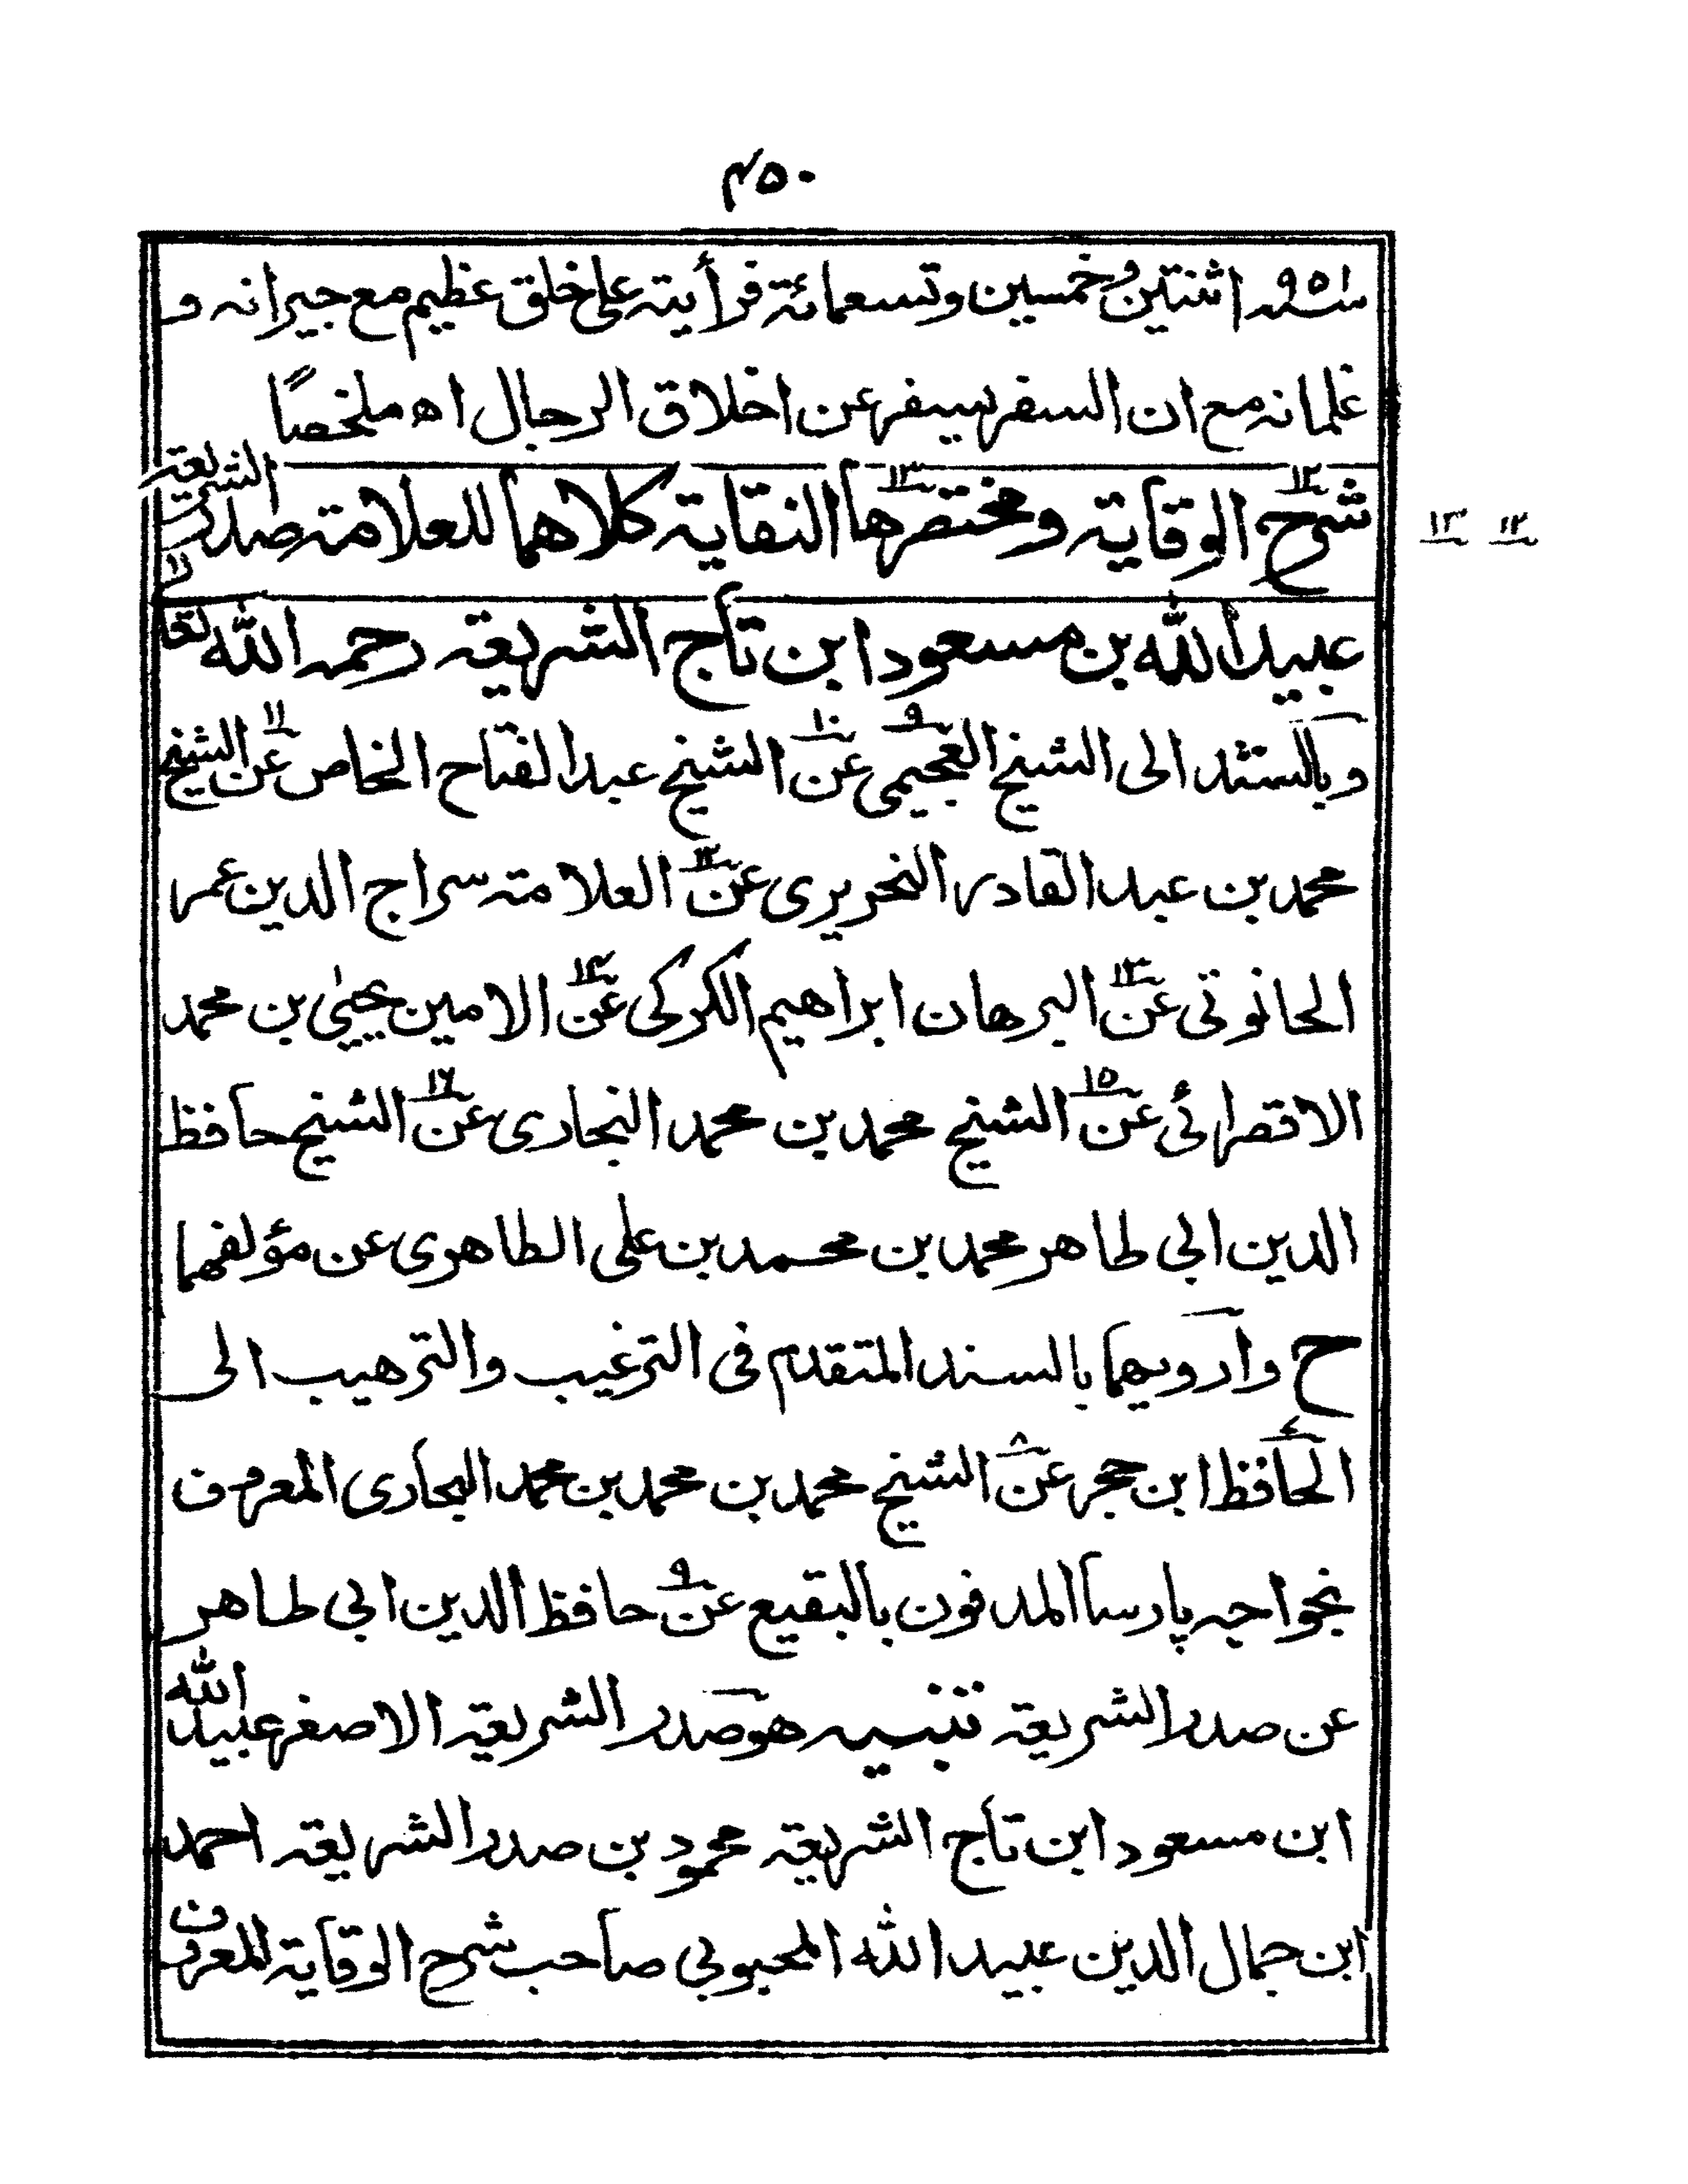 ٤٥٠
سنه ٩٥١ اثنتين وخمسين وتسعمائة فرأيته على خلق عظيم مع جيرانه و
غلمانه مع ان السفر يسفر عن اخلاق الرجال اه ملخصًا
شرح الوقاية ومختصرها النقاية كلاهما للعلامة صدر الشريعة
١٢ ١٣
عبيد الله بن مسعود ابن تاج الشريعة رحمه الله تعا
وبالسند الى الشيخ العجيمى ٩ عن ١٠ الشيخ عبد الفتاح الخاص عن ١١ الشيخ
محمد بن عبد القادر النحريرى عن ١٢ العلامة سراج الدين عمر
الحانوتى عن ١٣ البرهان ابراهيم الكركى عن ١٤ الامين يحيى بن محمد
الاقصرائى عن ١٥ الشيخ محمد بن محمد البخارى عن ١٦ الشيخ حافظ
الدين ابي طاهر محمد بن محمد بن على الطاهرى عن مؤلفهما
ح وارويهما بالسند المتقدم فى الترغيب والترهيب الى
الحافظ ابن حجر عن ٨ الشيخ محمد بن محمد بن محمد البخارى المعروف
بخواجه پارسا المدفون بالبقيع عن ٩ حافظ الدين ابي طاهر
عن صدر الشريعة تنبيه هو صدر الشريعة الاصغر عبيد الله
ابن مسعود ابن تاج الشريعة محمود بن صدر الشريعة احمد
ابن جمال الدين عبيد الله المحبوبي صاحب شرح الوقاية المعروف